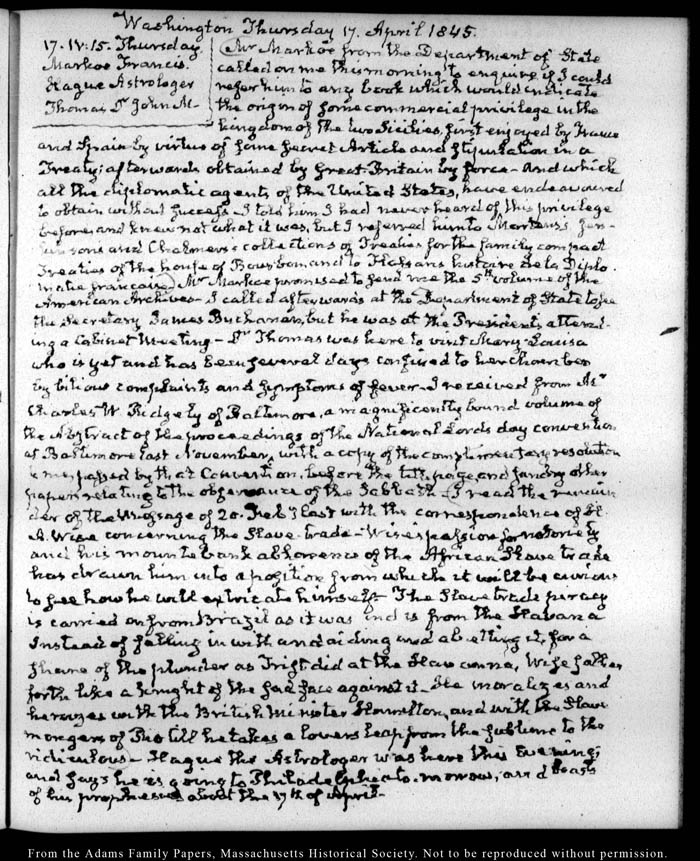 Washington Thursday 17. April 1845.
17. IV:15. Thursday
Markoe Francis.
Hague Astrologer
Thomas Dr John M
Mr Markoe from the Department of State
called on me this morning to enquire if I could
refer him to any book which would indicate
the origin of some commercial privilege in the
kingdom of the two Sicilies, first enjoyed by France
and Spain by virtue of some secret Article and stipulation in a
Treaty; afterwards obtained by Great-Britain by force – And which
all the diplomatic agents of the United States, have endeavoured
to obtain without success – I told him I had never heard of this privilege
before and knew not what it was, but I referred him to Martens's, Jen-
kinsons and Chalmers's collections of Treaties for the family compact
Treaties of the house of Bourbon and to Flassans histoire de la Diplo-
matie francaise, Mr Markoe promised to send me the 5th volume of the
American Archives – I called afterwards at the Department of State to see
the Secretary James Buchanan, but he was at the President's attend-
ing a Cabinet Meeting – Dr Thomas was here to visit Mary-Louisa
who is yet and has been several days confined to her chamber
by bilious complaints and symptoms of fever – I received from
Charles W. Ridgely of Baltimore, a magnificently bound volume of
the Abstract of the proceedings of the National Lords day convention
at Baltimore last November, with a copy of the complimentary resolution
to me passed by that Convention, before the title page, and sundry other
papers relating to the observance of the Sabbath – I read the remain-
der of the Message of 20. Feby last with the correspondence of H.
A. Wise concerning the Slave-trade – Wise's passion for notoriety
and his mountebank abhorrence of the African Slave trade
has drawn him into a position from which it will be curious
to see how he will extricate himself – The Slave trade piracy
is carried on from Brazil as it was and is from the Havana
Instead of falling in with and aiding and abetting it, for a
share of the plunder as Trist did at the Havanna, Wise sallies
forth like a knight of the sad face against it – He moralizes and
harangues with the British Minister Hamilton, and with the Slave
mongers of Rio till he takes a lovers leap from the sublime to the
ridiculous – Hague the Astrologer was here this Evening
and says he is going to Philadelphia to-morrow, and boasts
of his prophesies about the 17th of April –
From the Adams Family Papers, Massachusetts Historical Society. Not to be reproduced without permission.